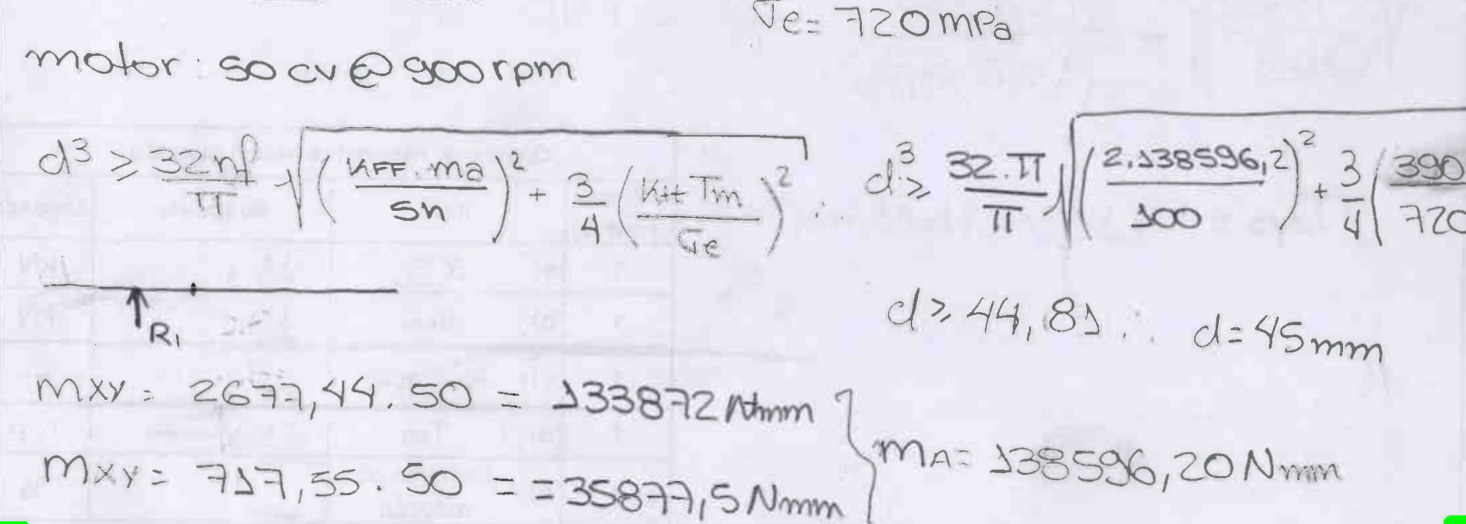 Ṽe = 720 mPa
motor: 50 cv @ 900 rpm
d³ ≥ 32nf/π √((KFF.ma/Sn)² + 3/4 (Ktt Tm/σe)²) ∴ d³ ≥ 32.π/π √((2.138596,2/100)² + 3/4 (390/720
R₁
d ≥ 44,81 ∴ d = 45mm
mxy = 2677,44.50 = 133872 Nmm
mxy = 717,55.50 = =35877,5 Nmm
mA = 138596,20 Nmm